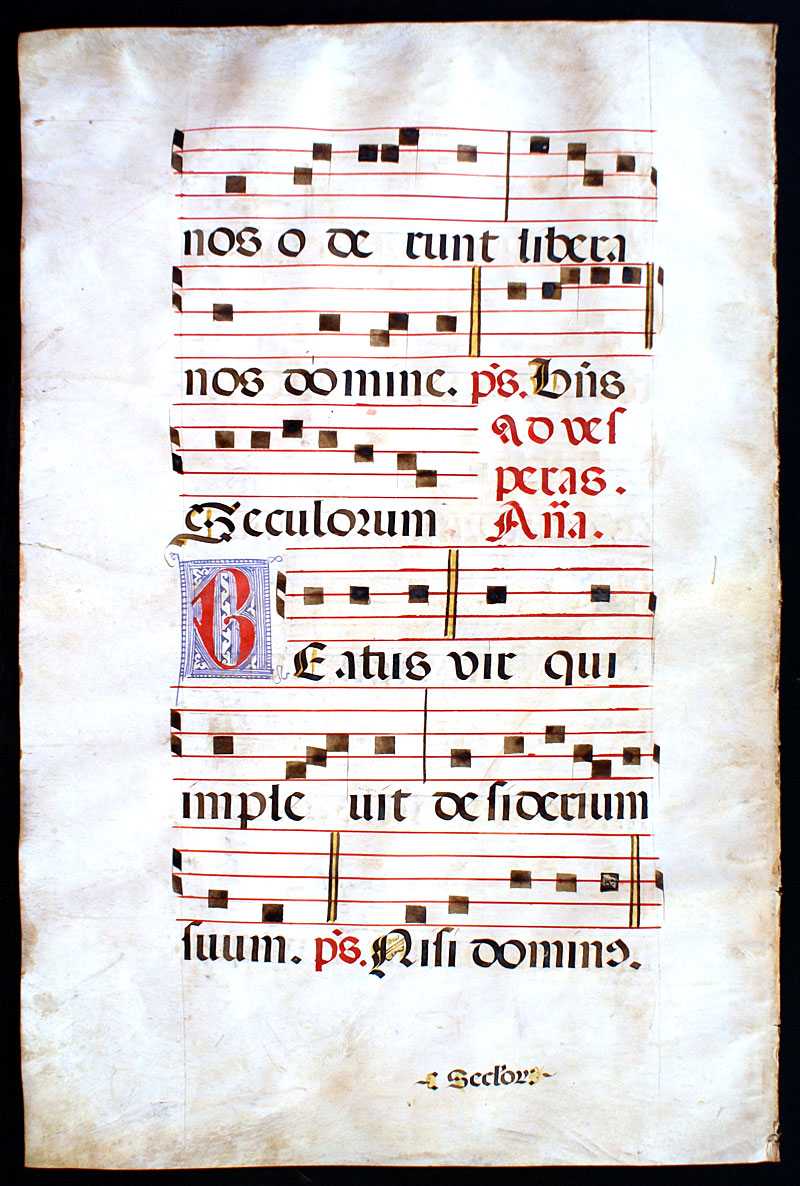 nos o de runt libera
nos domine. ps. Bñs
Seculorum
ad ves
peras.
Aña.
BEatus vir qui
imple uit desiderium
suum. ps. Nisi domins.
Seclor